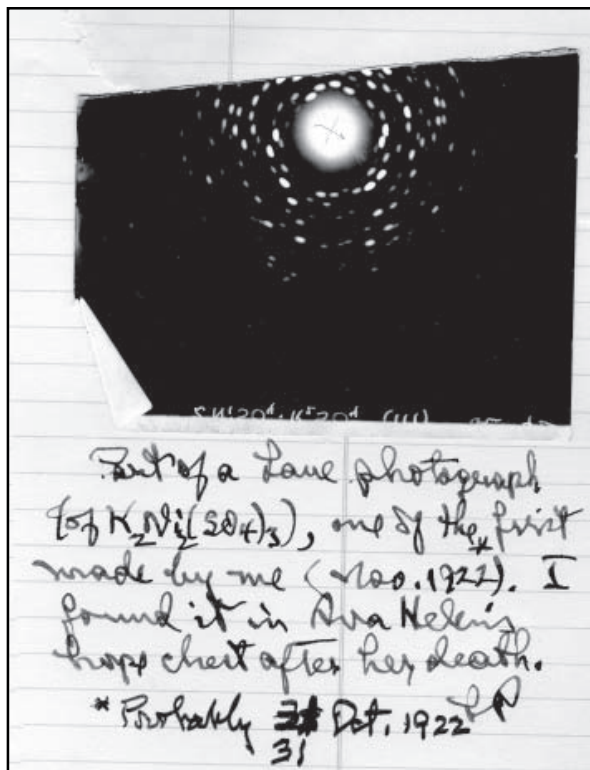 2NiSO4·K2SO4 (111)
Part of a Laue photograph
(of K₂Ni₂(SO4)₃), one of the* first
made by me (Nov. 1922). I
found it in Ava Helen's
hope chest after her death.
LP
* Probably Oct. 1922
31